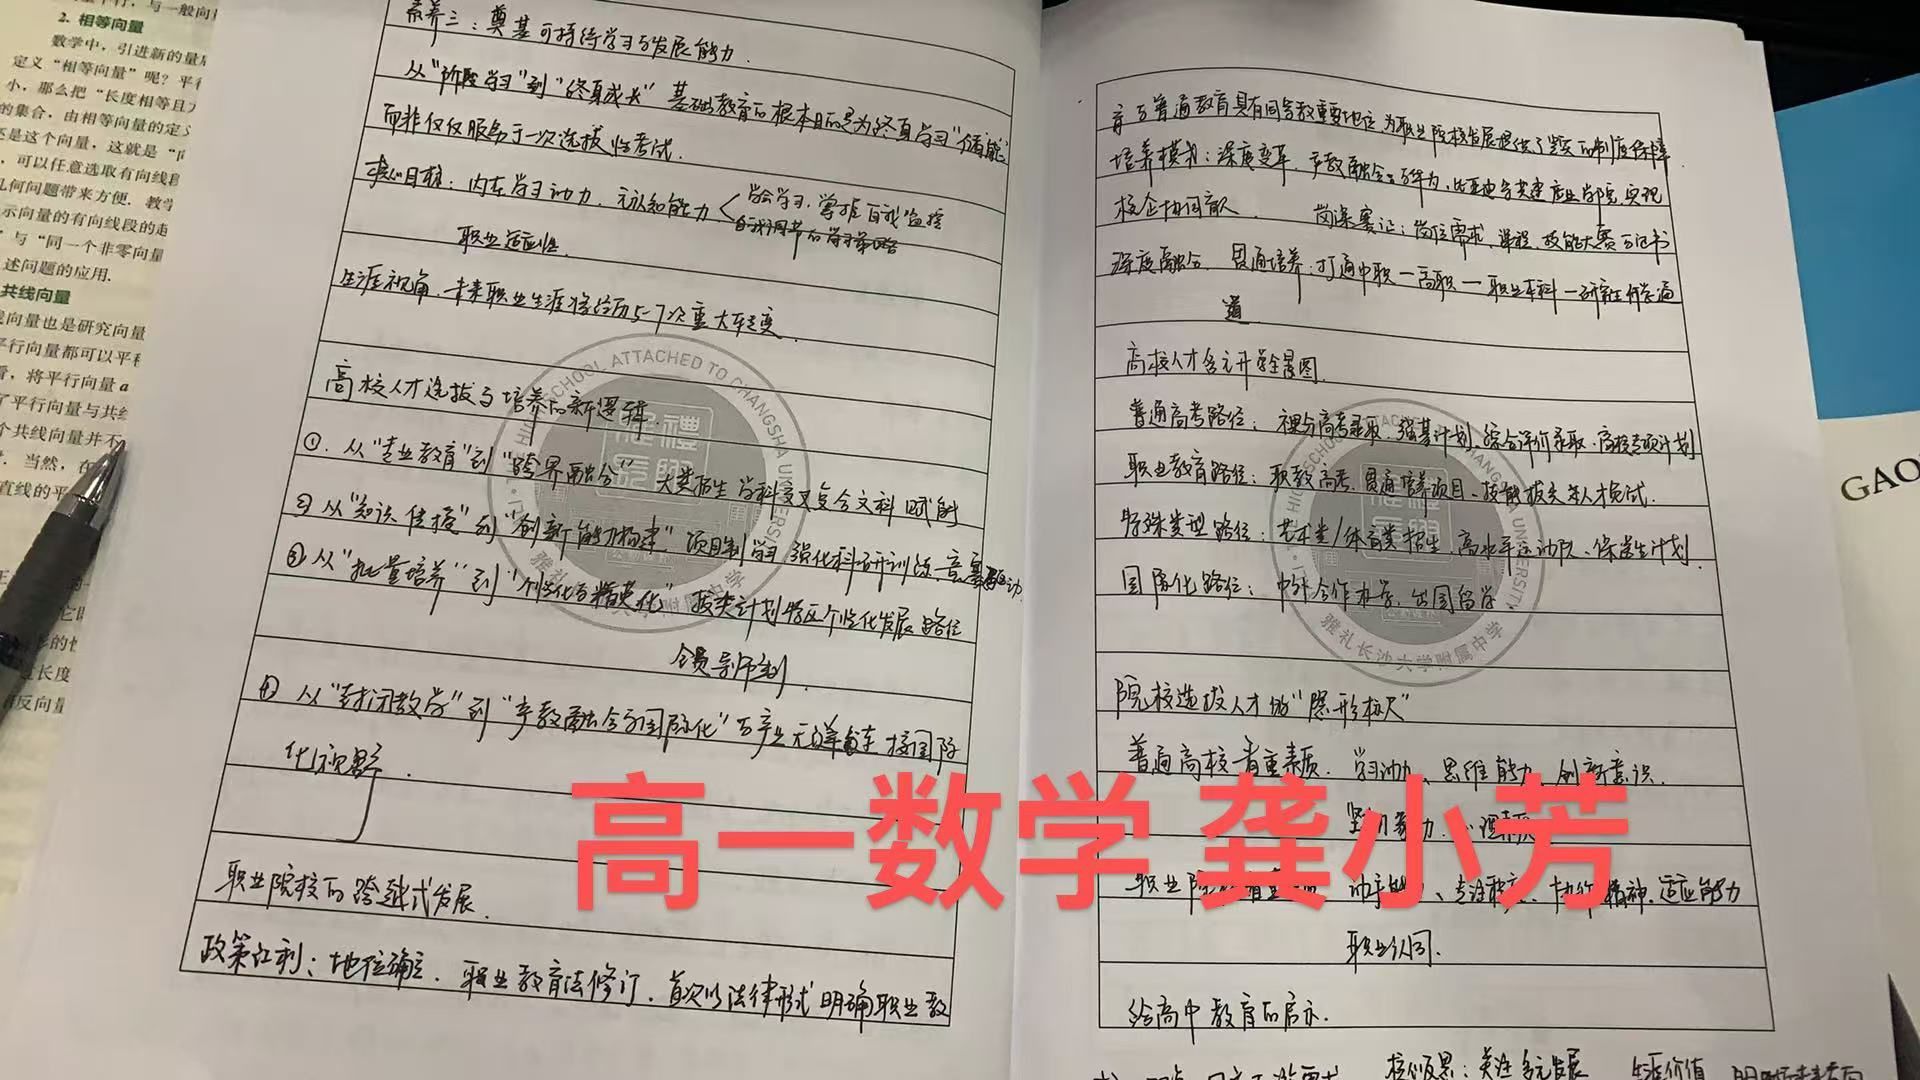 2. 相等向量
数学中，引进新的量
定义“相等向量”呢？平行
小，那么把“长度相等且
的集合，由相等向量的定义
还是这个向量，这就是
可以任意选取有向线段
几何问题带来方便．教学
示向量的有向线段的起
与“同一个非零向量
述问题的应用.
共线向量
线向量也是研究向量
平行向量都可以平移
看，将平行向量a
了平行向量与共线
个共线向量并不
当然，在
直线的平
素养三：奠基可持续学习与发展能力.
从“阶段学习”到“终身成长” 基础教育的根本目的是为终身学习“储能”
而非仅仅服务于一次选拔性考试.
核心目标：内在学习动力、元认知能力 学会学习，掌握自我监控
自我调节的学习策略
职业适应性.
生涯视角，未来职业生涯将经历5-7次重大转变
高校人才选拔与培养的新逻辑.
①. 从“专业教育”到“跨界融合” 大类招生 学科交叉复合文科赋能
② 从“知识传授”到“创新能力构建” 项目制学习 强化科研训练 竞赛驱动.
③ 从“批量培养”到“个性化与精英化” 拔尖计划 特区个性化发展路径
全员导师制.
④ 从“封闭教学”到“产教融合与国际化” 与产业无缝链接 接国际
化视野.
职业院校的跨越式发展.
政策红利：地位确立. 职业教育法修订. 首次以法律形式明确职业教
育与普通教育具有同等教重要地位 为职业院校发展提供了坚实的制度保障.
培养模式：深度变革. 产教融合
校企协同育人. 岗课赛证：岗位需求、课程、技能大赛与证书
深度融合. 贯通培养：打通中职—高职—职业本科—研究生升学通
道
高校人才多元升学全景图.
普通高考路径： 裸分高考录取、强基计划、综合评价录取、高校专项计划
职业教育路径： 职教高考、贯通培养项目、技能拔尖人才免试.
特殊类型路径：艺术类/体育类招生、高水平运动队、保送生计划.
国际化路径：中外合作办学、出国留学.
院校选拔人才的“隐形标尺”
普通高校看重素质. 学习动力、思维能力、创新意识.
职业院 动手能力、专注程度、协作精神、适应能力
职业认同.
给高中教育的启示.
核心反思：关注多元发展 生涯价值
HIGH SCHOOL ATTACHED TO CHANGSHA UNIVERSITY
雅礼长沙大学附属中学
高一数学 龚小芳
GAO